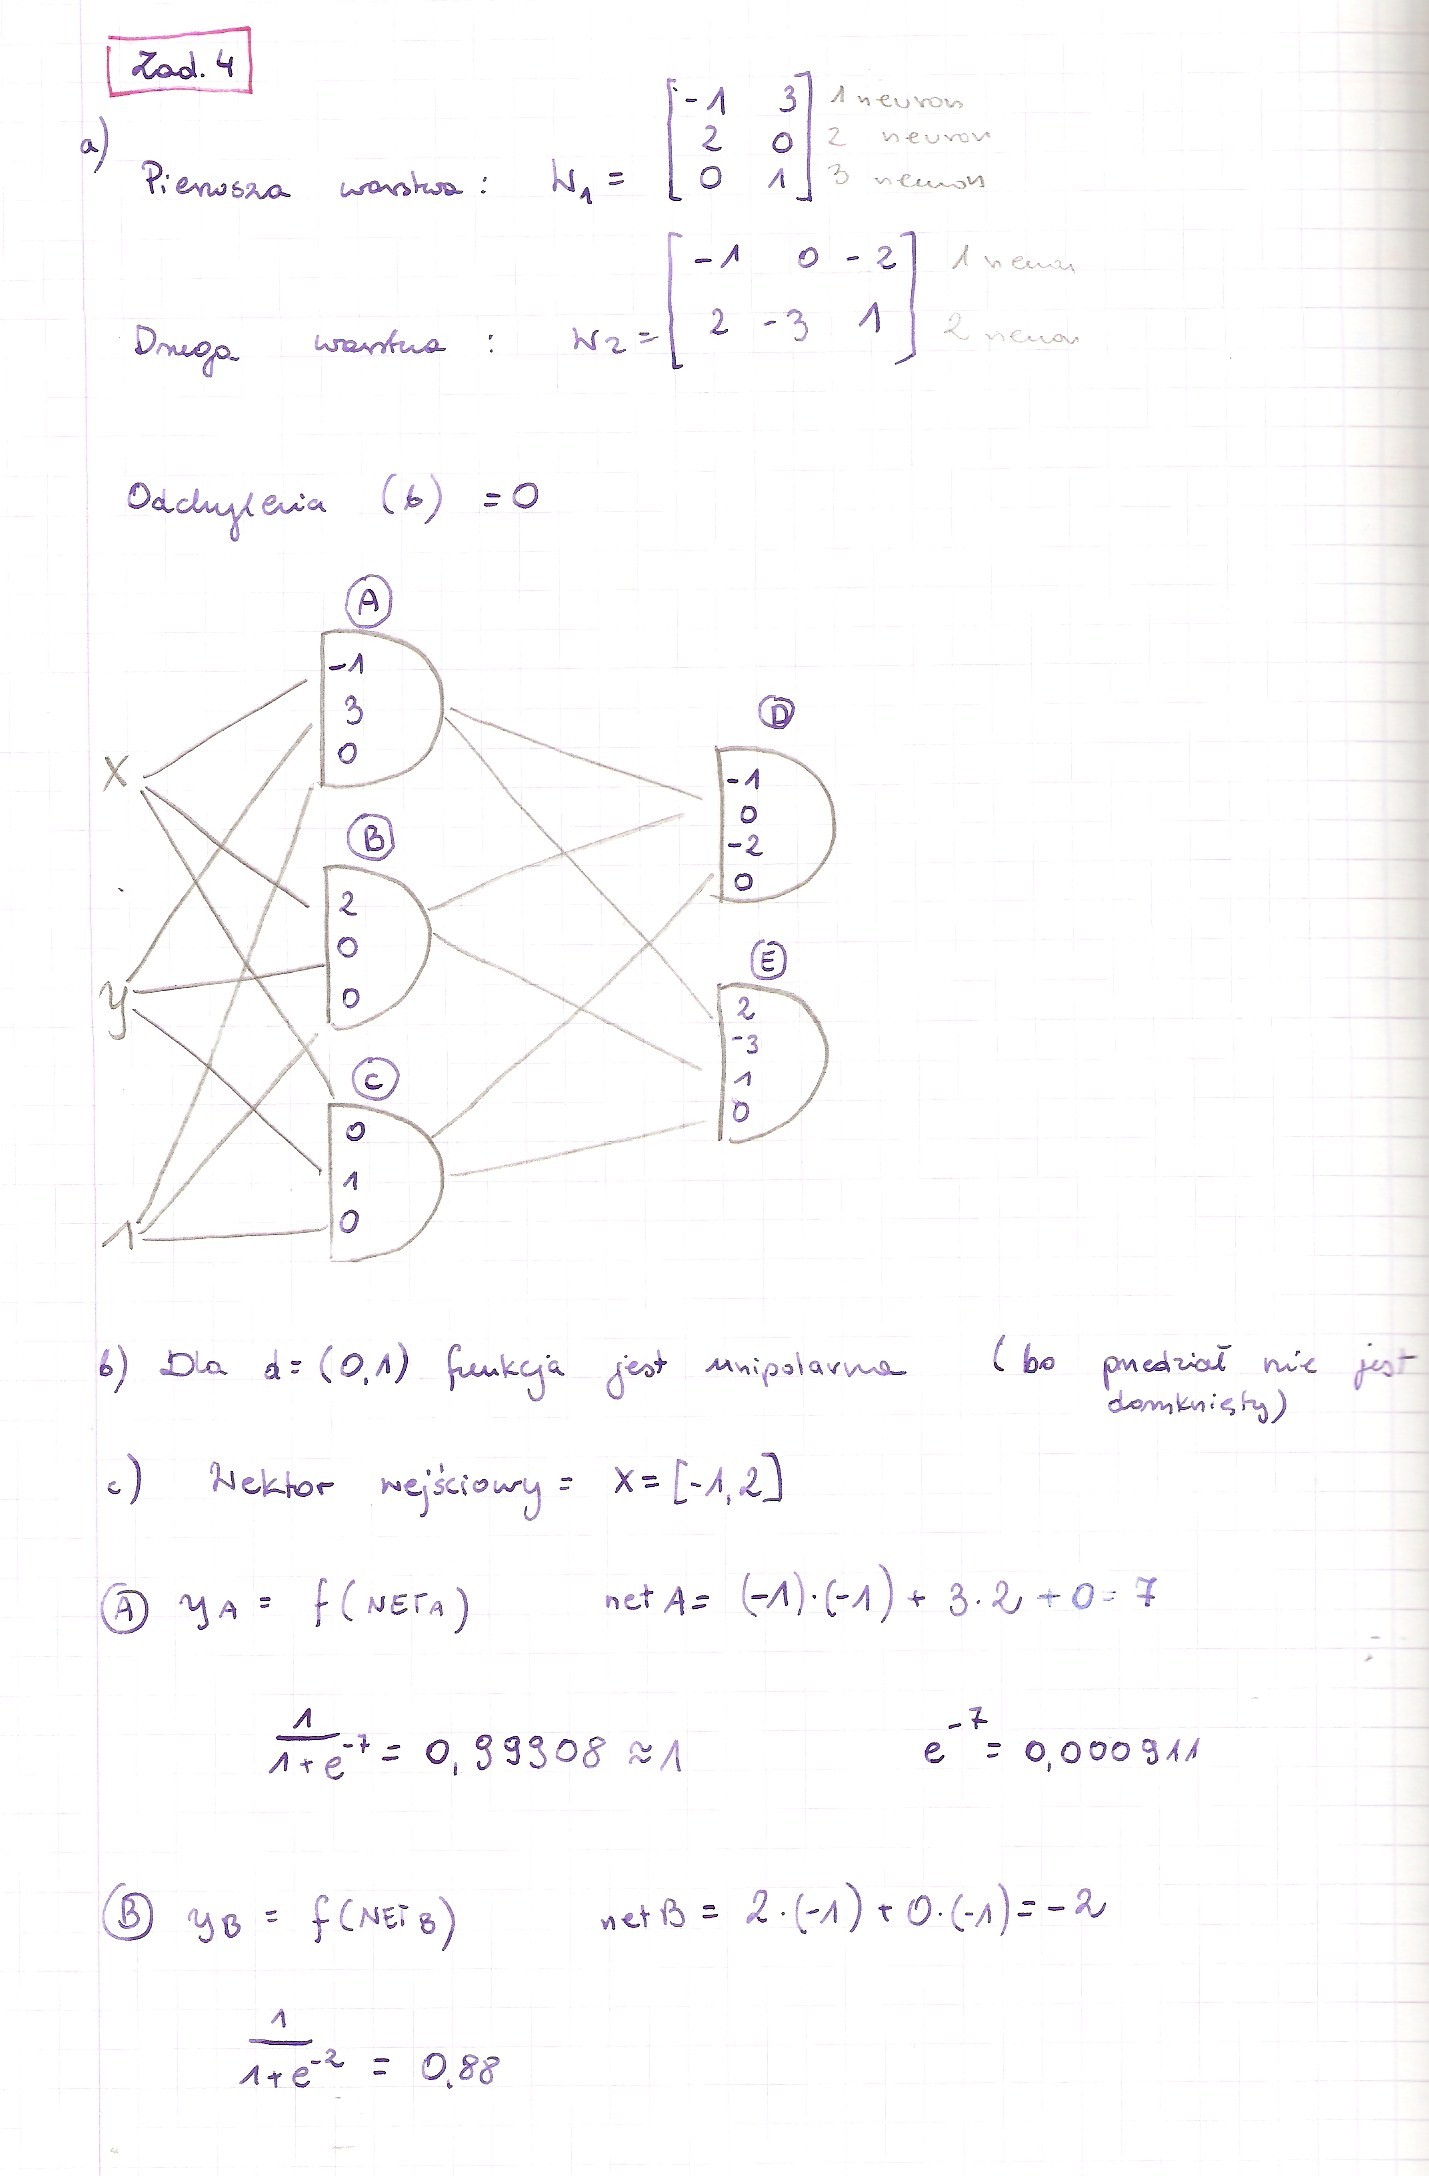 Zad. 4
a)
Pierwsza warstwa : W1 = [ -1 3 ] 1 neuron
[ 2 0 ] 2 neuron
[ 0 1 ] 3 neuron
Druga warstwa : W2 = [ -1 0 -2 ] 1 neuron
[ 2 -3 1 ] 2 neuron
Odchylenia (b) = 0
A
-1
3
0
X
B
2
0
0
y
C
0
1
0
1
D
-1
0
-2
0
E
2
-3
1
0
b) Dla d = (0,1) funkcja jest unipolarna (bo przedział nie jest
domknięty)
c) Wektor wejściowy = X = [-1, 2]
A yA = f(NETA) net A = (-1)·(-1) + 3·2 + 0 = 7
1/(1+e^-7) = 0,99908 ≈ 1 e^-7 = 0,000911
B yB = f(NETB) net B = 2·(-1) + 0·(-1) = -2
1/(1+e^-2) = 0,88